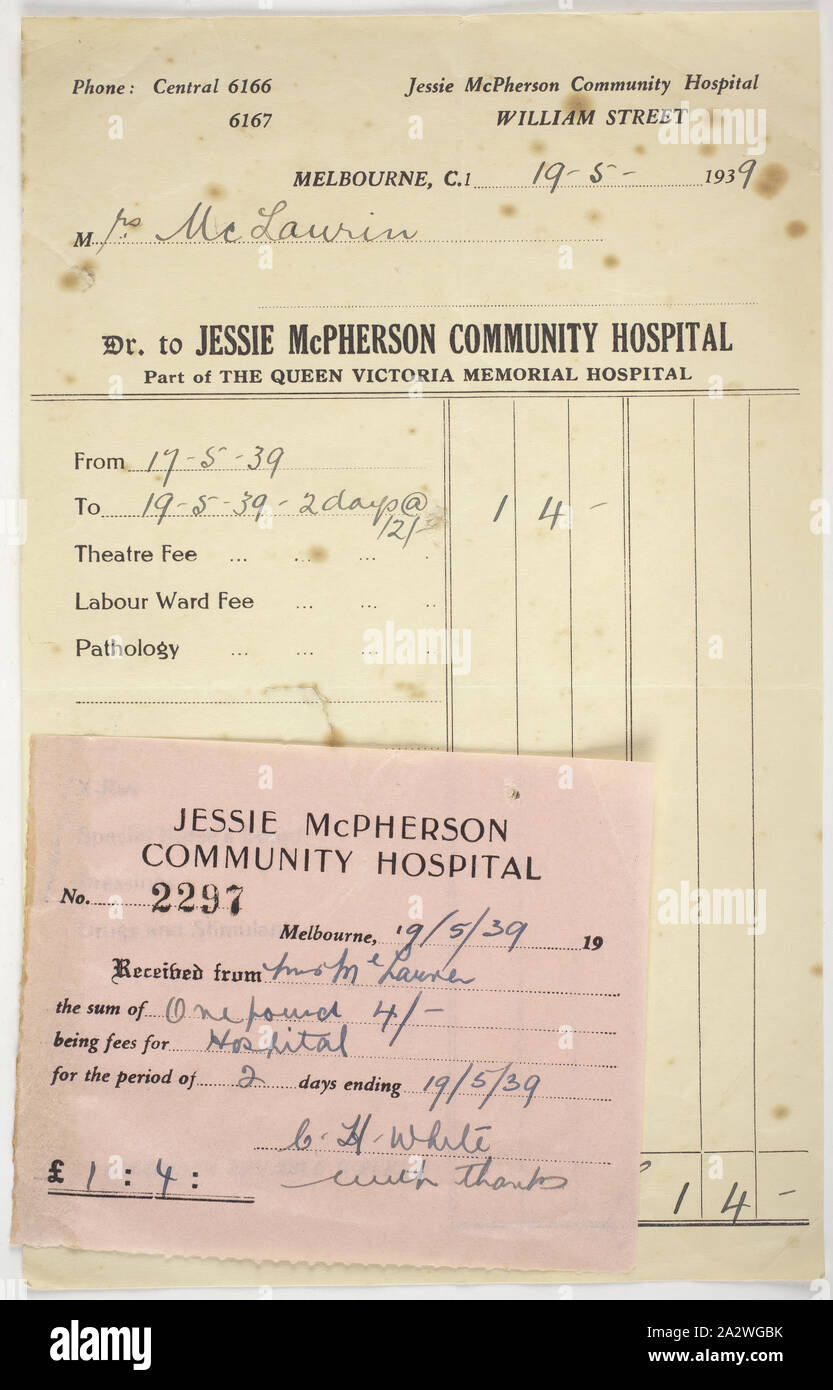 Phone: Central 6166 Jessie McPherson Community Hospital
6167 WILLIAM STREET
MELBOURNE, C.1 19-5- 1939
Mrs McLaurin
Dr. to JESSIE McPHERSON COMMUNITY HOSPITAL
Part of THE QUEEN VICTORIA MEMORIAL HOSPITAL
From 17-5-39
To 19-5-39-2 days @ 1 4 -
12/-
Theatre Fee ... ... ... .
Labour Ward Fee ... ... ..
Pathology ... ... ... .
JESSIE McPHERSON
COMMUNITY HOSPITAL
No. 2297
Melbourne, 19/5/39 19
Received from Mrs
the sum of One pound 4/-
being fees for Hospital
for the period of 2 days ending 19/5/39
C. H. White
£ 1 : 4 : with thanks
1 4 -
alamy
Image ID: 2A2WGBK
www.alamy.com